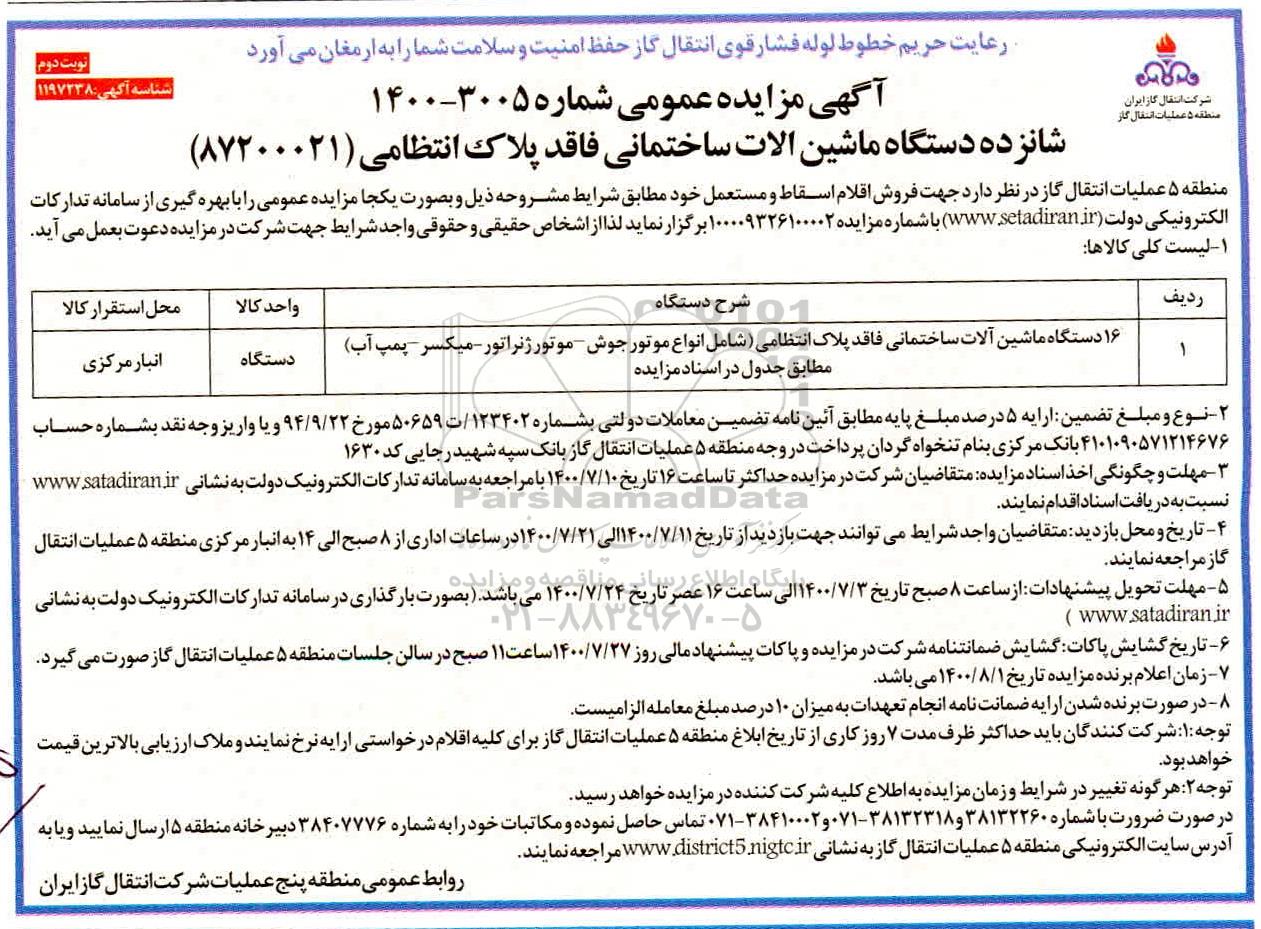 رعایت حریم خطوط لوله فشار قوی انتقال گاز حفظ امنیت و سلامت شما را به ارمغان می آورد
نوبت دوم
شناسه آگهی: ۱۱۹۷۲۳۸
شرکت انتقال گاز ایران
منطقه ۵ عملیات انتقال گاز
آگهی مزایده عمومی شماره ۳۰۰۵-۱۴۰۰
شانزده دستگاه ماشین الات ساختمانی فاقد پلاک انتظامی (۸۷۲۰۰۰۲۱)
منطقه ۵ عملیات انتقال گاز در نظر دارد جهت فروش اقلام اسقاط و مستعمل خود مطابق شرایط مشروحه ذیل و بصورت یکجا مزایده عمومی را با بهره گیری از سامانه تدارکات
الکترونیکی دولت (www.setadiran.ir) با شماره مزایده ۱۰۰۰۰۹۳۲۶۱۰۰۰۰۲ برگزار نماید لذا از اشخاص حقیقی و حقوقی واجد شرایط جهت شرکت در مزایده دعوت بعمل می آید.
۱-لیست کلی کالاها:
ردیف شرح دستگاه واحد کالا محل استقرار کالا
۱ ۱۶ دستگاه ماشین آلات ساختمانی فاقد پلاک انتظامی (شامل انواع موتور جوش-موتور ژنراتور-میکسر-پمپ آب) دستگاه انبار مرکزی
مطابق جدول در اسناد مزایده
۲-نوع و مبلغ تضمین: ارایه ۵ درصد مبلغ پایه مطابق آئین نامه تضمین معاملات دولتی بشماره ۱۲۳۴۰۲/ت ۵۰۶۵۹ مورخ ۹۴/۹/۲۲ و یا واریز وجه نقد بشماره حساب
۴۱۰۱۰۹۰۵۷۱۲۱۴۶۷۶ بانک مرکزی بنام تنخواه گردان پرداخت در وجه منطقه ۵ عملیات انتقال گاز بانک سپه شهید رجایی کد ۱۶۳۰
۳-مهلت و چگونگی اخذ اسناد مزایده: متقاضیان شرکت در مزایده حداکثر تا ساعت ۱۶ تاریخ ۱۴۰۰/۷/۱۰ با مراجعه به سامانه تدارکات الکترونیک دولت به نشانی www.satadiran.ir
نسبت به دریافت اسناد اقدام نمایند.
۴- تاریخ و محل بازدید: متقاضیان واجد شرایط می توانند جهت بازدید از تاریخ ۱۴۰۰/۷/۱۱ الی ۱۴۰۰/۷/۲۱ در ساعات اداری از ۸ صبح الی ۱۴ به انبار مرکزی منطقه ۵ عملیات انتقال
گاز مراجعه نمایند.
۵-مهلت تحویل پیشنهادات: از ساعت ۸ صبح تاریخ ۱۴۰۰/۷/۳ الی ساعت ۱۶ عصر تاریخ ۱۴۰۰/۷/۲۴ می باشد. (بصورت بارگذاری در سامانه تدارکات الکترونیک دولت به نشانی
www.satadiran.ir )
۶-تاریخ گشایش پاکات: گشایش ضمانتنامه شرکت در مزایده و پاکات پیشنهاد مالی روز ۱۴۰۰/۷/۲۷ ساعت ۱۱ صبح در سالن جلسات منطقه ۵ عملیات انتقال گاز صورت می گیرد.
۷-زمان اعلام برنده مزایده تاریخ ۱۴۰۰/۸/۱ می باشد.
۸-در صورت برنده شدن ارایه ضمانت نامه انجام تعهدات به میزان ۱۰ درصد مبلغ معامله الزامیست.
توجه ۱: شرکت کنندگان باید حداکثر ظرف مدت ۷ روز کاری از تاریخ ابلاغ منطقه ۵ عملیات انتقال گاز برای کلیه اقلام درخواستی ارایه نرخ نمایند و ملاک ارزیابی بالاترین قیمت
خواهد بود.
توجه ۲: هر گونه تغییر در شرایط و زمان مزایده به اطلاع کلیه شرکت کننده در مزایده خواهد رسید.
در صورت ضرورت با شماره ۳۸۱۳۲۲۶۰ و ۳۸۱۳۲۳۱۸-۰۷۱ و ۳۸۴۱۰۰۰۲-۰۷۱ تماس حاصل نموده و مکاتبات خود را به شماره ۳۸۴۰۷۷۷۶ دبیرخانه منطقه ۵ ارسال نمایید و یا به
آدرس سایت الکترونیکی منطقه ۵ عملیات انتقال گاز به نشانی www.district5.nigtc.ir مراجعه نمایند.
روابط عمومی منطقه پنج عملیات شرکت انتقال گاز ایران
ParsNamadData
پایگاه اطلاع رسانی مناقصه و مزایده
۰۲۱-۸۸۳۴۹۶۷۰-۵